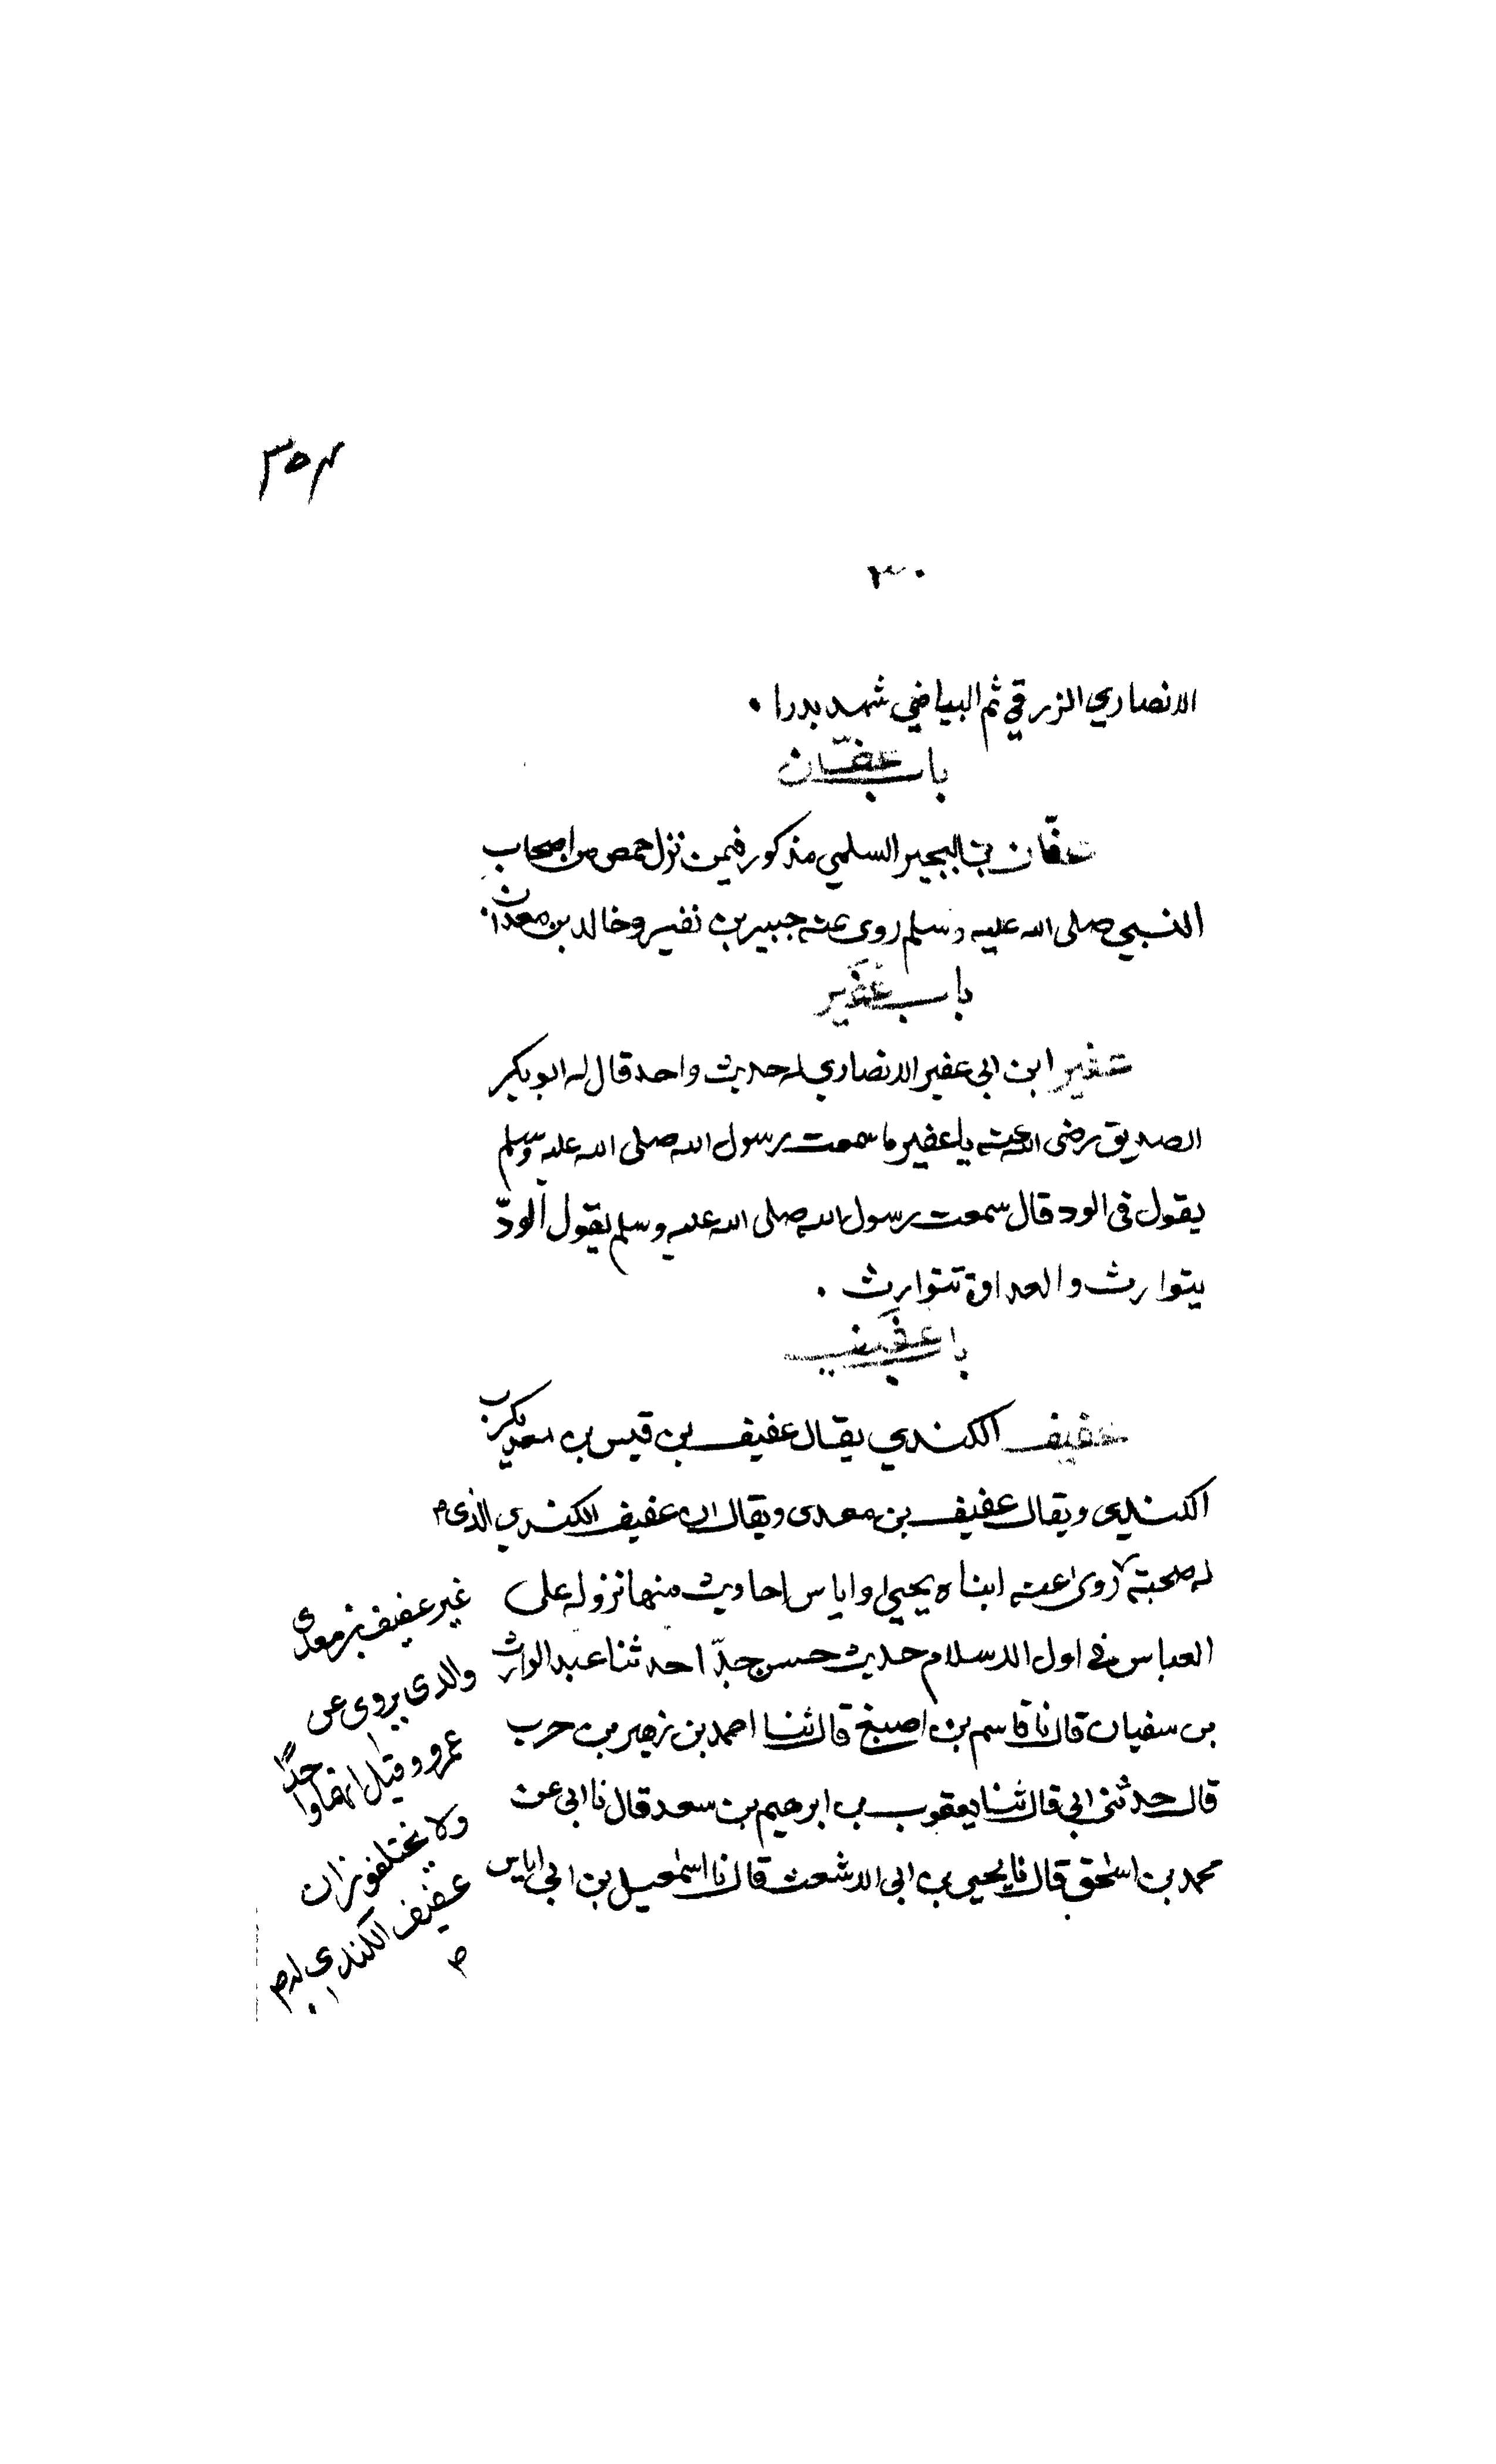 ٣٥٤
٣٠
الانصاري الزرقي ثم البياضي شهد بدرا .
باب عفّان
عفّان بن البجير السلمي مذكور فيمن نزل حمص من اصحاب
النبي صلى الله عليه وسلم روى عنه جبير بن نفير وخالد بن معدان .
باب عفير
عفير ابن ابي عفير الانصاري له حديث واحد قال له ابو بكر
الصديق رضى الله عنه يا عفير ما سمعت رسول الله صلى الله عليه وسلم
يقول فى الود قال سمعت رسول الله صلى الله عليه وسلم يقول الودّ
يتوارث والعداوة تتوارث .
باب عفيف
عفيف الكندي يقال عفيف بن قيس بن معدي كرب
الكندي ويقال عفيف بن معدى ويقال ان عفيف الكندي الذى
له صحبة روى عنه ابناه يحيى واياس احاديث منها نزوله على
العباس فى اول الاسلام حديث حسن جدّا حدثنا عبد الوارث
بن سفيان قال نا قاسم بن اصبغ قال ثنا احمد بن زهير بن حرب
قال حدثنى ابي قال ثنا يعقوب بن ابرهيم بن سعد قال نا ابى عن
محمد بن اسحق قال نا يحيى بن ابى الاشعث قال نا اسمعيل بن ابى اياس
غير عفيف بن معدى
والذى يروى عن
عمرو وقيل انهما واحدًا
ولا يختلفون ان
عفيف الكندي له